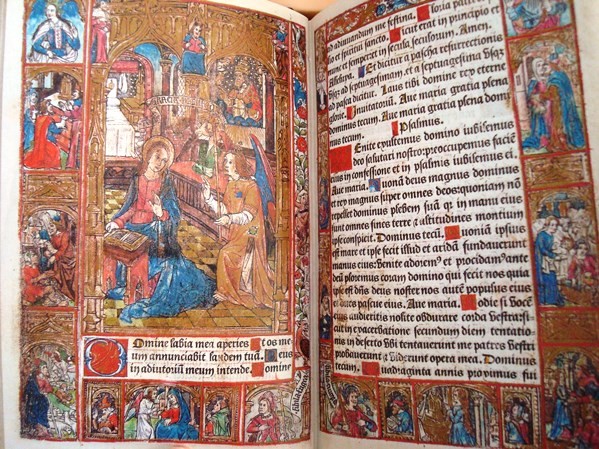 Domine labia mea aperies Et os me
um annunciabit laudem tuã. Deus
in adiutoriũ meum intende. Domine
ad adiuvandum me festina. Gloria patri
et filio et spiritui sancto. Sicut erat in principio et
nunc et semper et in secula seculorum. Amen.
Alleluya. Et dicitur a pascha resurrectionis
usq3 ad septuagesimam. et a septuagesima usq3
ad pasca dicitur. Laus tibi domine rex eterne
glorie. Invitatoriũ. Ave maria gratia plena
dominus tecum. Ave maria gratia plena domi
dominus tecum. Psalmus.
Enite exultemus domino iubilemus
deo salutari nostro: preoccupemus faciẽ
eius in confessione et in psalmis iubilemus ei
Ave maria. Quonã deus magnus dominus
et rex magnus super omnes deos: quoniam nõ
repellet dominus plebem suã. q3 in manu eius
sunt omnes fines terre et altitudines montium
ipse conspicit. Dominus tecũ. Quoniã ipsius
est mare et ipse fecit illud et aridã fundaverunt
manus eius: Venite adorem9 et procidam9 ante
deũ ploremus coram domino qui fecit nos quia
ipse est dñs deus noster nos autẽ populus eius
et oves pascue eius. Ave maria. Hodie si vocẽ
eius audieritis nolite obdurare corda vestra: sic
ut in exacerbatione secundum diem tentatio-
nis in deserto ubi tentaverunt me patres vestri
probaverunt et viderunt opera mea. Dominus
tecum. Quadraginta annis proximus fui